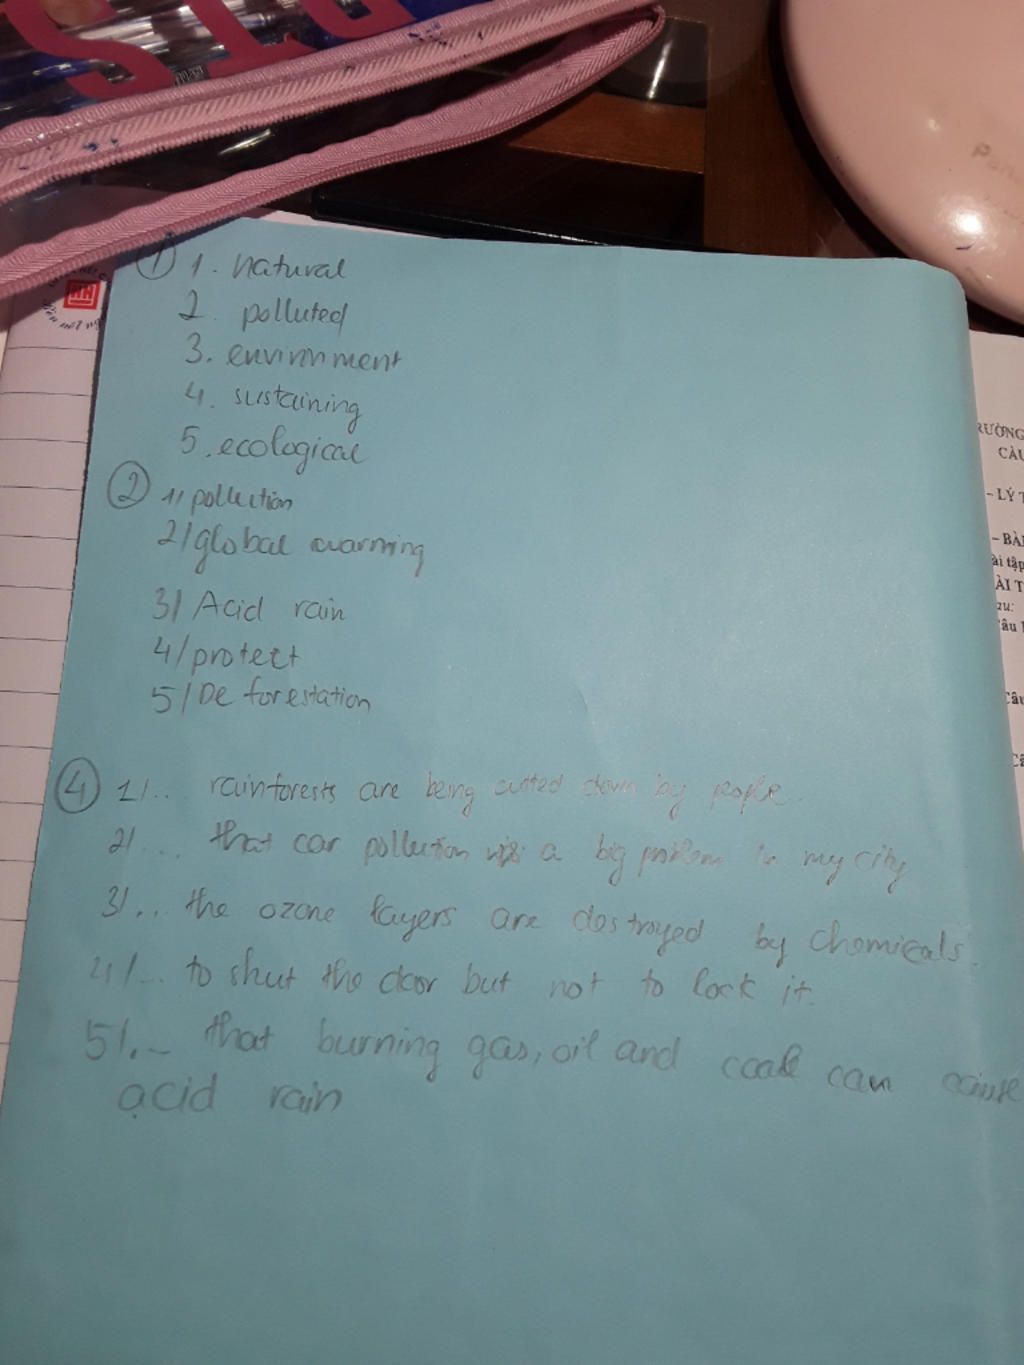 Pan
① 1. natural
2. polluted
3. envirnment
4. sustaining
5. ecological
② 1/ pollution
2/ global warming
3/ Acid rain
4/ protect
5/ De forestation
④ 1/.. rainforests are being cutted down by people.
2/... that car pollution is a big problem in my city
3/.. the ozone layers are destroyed by chemicals.
4/... to shut the door but not to lock it.
5/... that burning gas, oil and coal can cause
acid rain
RƯỜNG
CÂU
- LÝ T
- BÀI
ài tập
ÀI T
au:
âu
Câu